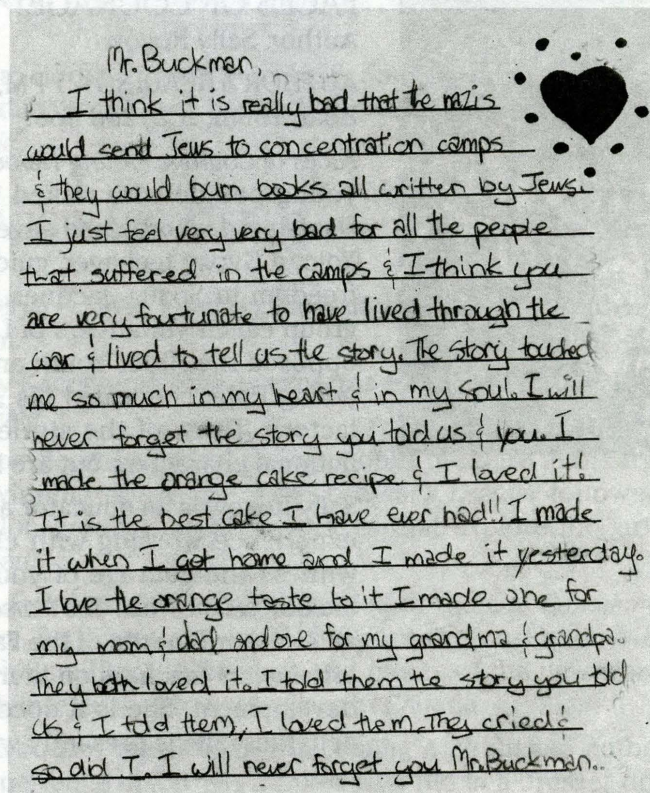 Mr. Buckman,
I think it is really bad that the nazis
would send Jews to concentration camps
& they would burn books all written by Jews.
I just feel very very bad for all the people
that suffered in the camps & I think you
are very fourtunate to have lived through the
war & lived to tell us the story. The story touched
me so much in my heart & in my soul. I will
never forget the story you told us & you. I
made the orange cake recipe & I loved it!
It is the best cake I have ever had!! I made
it when I got home and I made it yesterday.
I love the orange taste to it I made one for
my mom & dad and one for my grandma & grandpa.
They both loved it. I told them the story you told
us & I told them, I loved them. They cried &
so did I. I will never forget you Mr. Buckman..